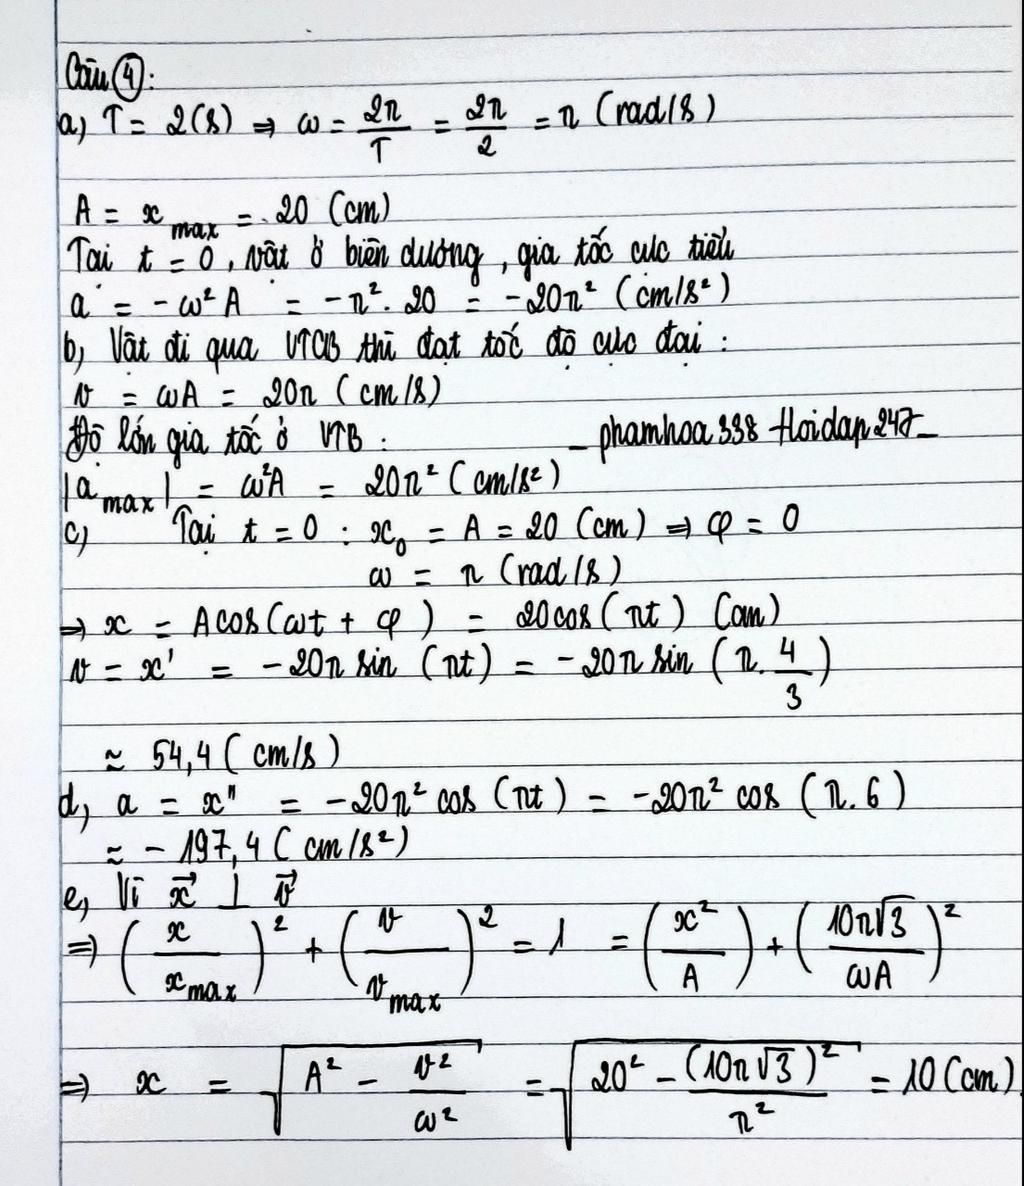 Câu ④:
a, T = 2(s) ⇒ ω = 2π/T = 2π/2 = π (rad/s)
A = x max = 20 (cm)
Tại t = 0, vật ở biên dương, gia tốc cực tiểu
a = -ω² A = -π² . 20 = -20π² (cm/s²)
b, Vật đi qua VTCB thì đạt tốc độ cực đại :
v = ωA = 20π (cm/s)
Độ lớn gia tốc ở VTB :
_ phamhoa338 Hoidap247_
|a max| = ω²A = 20π² (cm/s²)
c, Tại t = 0 : x₀ = A = 20 (cm) ⇒ φ = 0
ω = π (rad/s)
⇒ x = Acos(ωt + φ) = 20cos(πt) (cm)
v = x' = -20π sin (πt) = -20π sin (π. 4/3)
≈ 54,4 (cm/s)
d, a = x" = -20π² cos (πt) = -20π² cos (π.6)
≈ - 197,4 (cm/s²)
e, Vì x⃗ ⊥ v⃗
⇒ (x/x max)² + (v/v max)² = 1 = (x²/A) + (10π√3/ωA)²
⇒ x = √(A² - v²/ω²) = √(20² - (10π√3)²/π²) = 10 (cm)